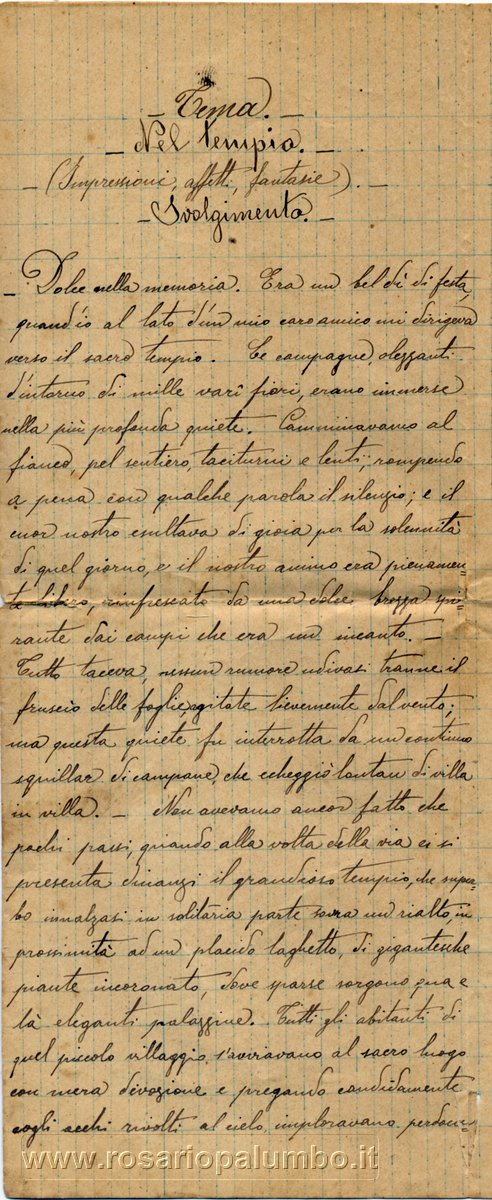 - Tema. -
- Nel tempio. -
- (Impressioni, affetti, fantasie). -
- Svolgimento. -
- Dolce nella memoria. Era un bel dì di festa,
quand'io al lato d'un mio caro amico mi dirigeva
verso il sacro tempio. Le campagne, olezzanti
d'intorno di mille varî fiori, erano immerse
nella più profonda quiete. Camminavamo al
fianco, pel sentiero, taciturni e lenti, rompendo
a pena con qualche parola il silenzio; e il
cuor nostro esultava di gioia per la solennità
di quel giorno, e il nostro animo era pienamen=
te libero, rinfrescato da una dolce brezza spi=
rante dai campi che era un incanto. -
Tutto taceva, nessun rumore udivasi tranne il
fruscio delle foglie, agitate lievemente dal vento;
ma questa quiete fu interrotta da un continuo
squillar di campane, che echeggiò lontan di villa
in villa. - Non avevamo ancor fatto che
pochi passi, quando alla volta della via ci si
presenta dinanzi il grandioso tempio, che super=
bo innalzasi in solitaria parte sovra un rialto, in
prossimità ad un placido laghetto, di gigantesche
piante incoronato, dove sparse sorgono qua e
là eleganti palazzine. Tutti gli abitanti di
quel piccolo villaggio s'avviavano al sacro luogo
con mera divozione e pregando candidamente
cogli occhi rivolti al cielo, imploravano perdon=
www.rosariopalumbo.it